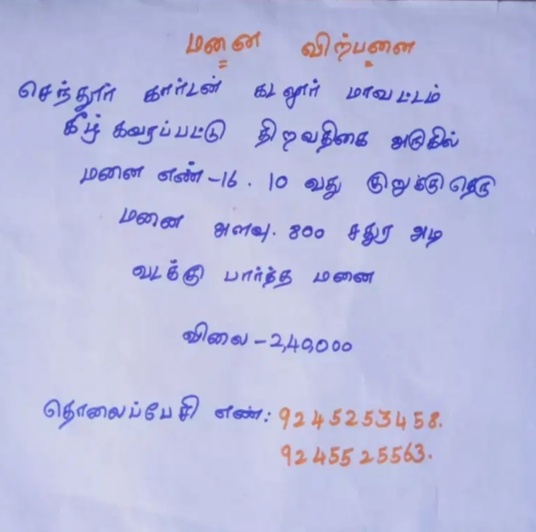 மனை விற்பனை
செந்தூர் கார்டன் கடலூர் மாவட்டம்
கீழ் கவரப்பட்டு திருவதிகை அருகில்
மனை எண் - 16. 10 வது குறுக்கு தெரு
மனை அளவு. 800 சதுர அடி
வடக்கு பார்த்த மனை
விலை - 2,40,000
தொலைப்பேசி எண்: 9245253458.
9245525563.